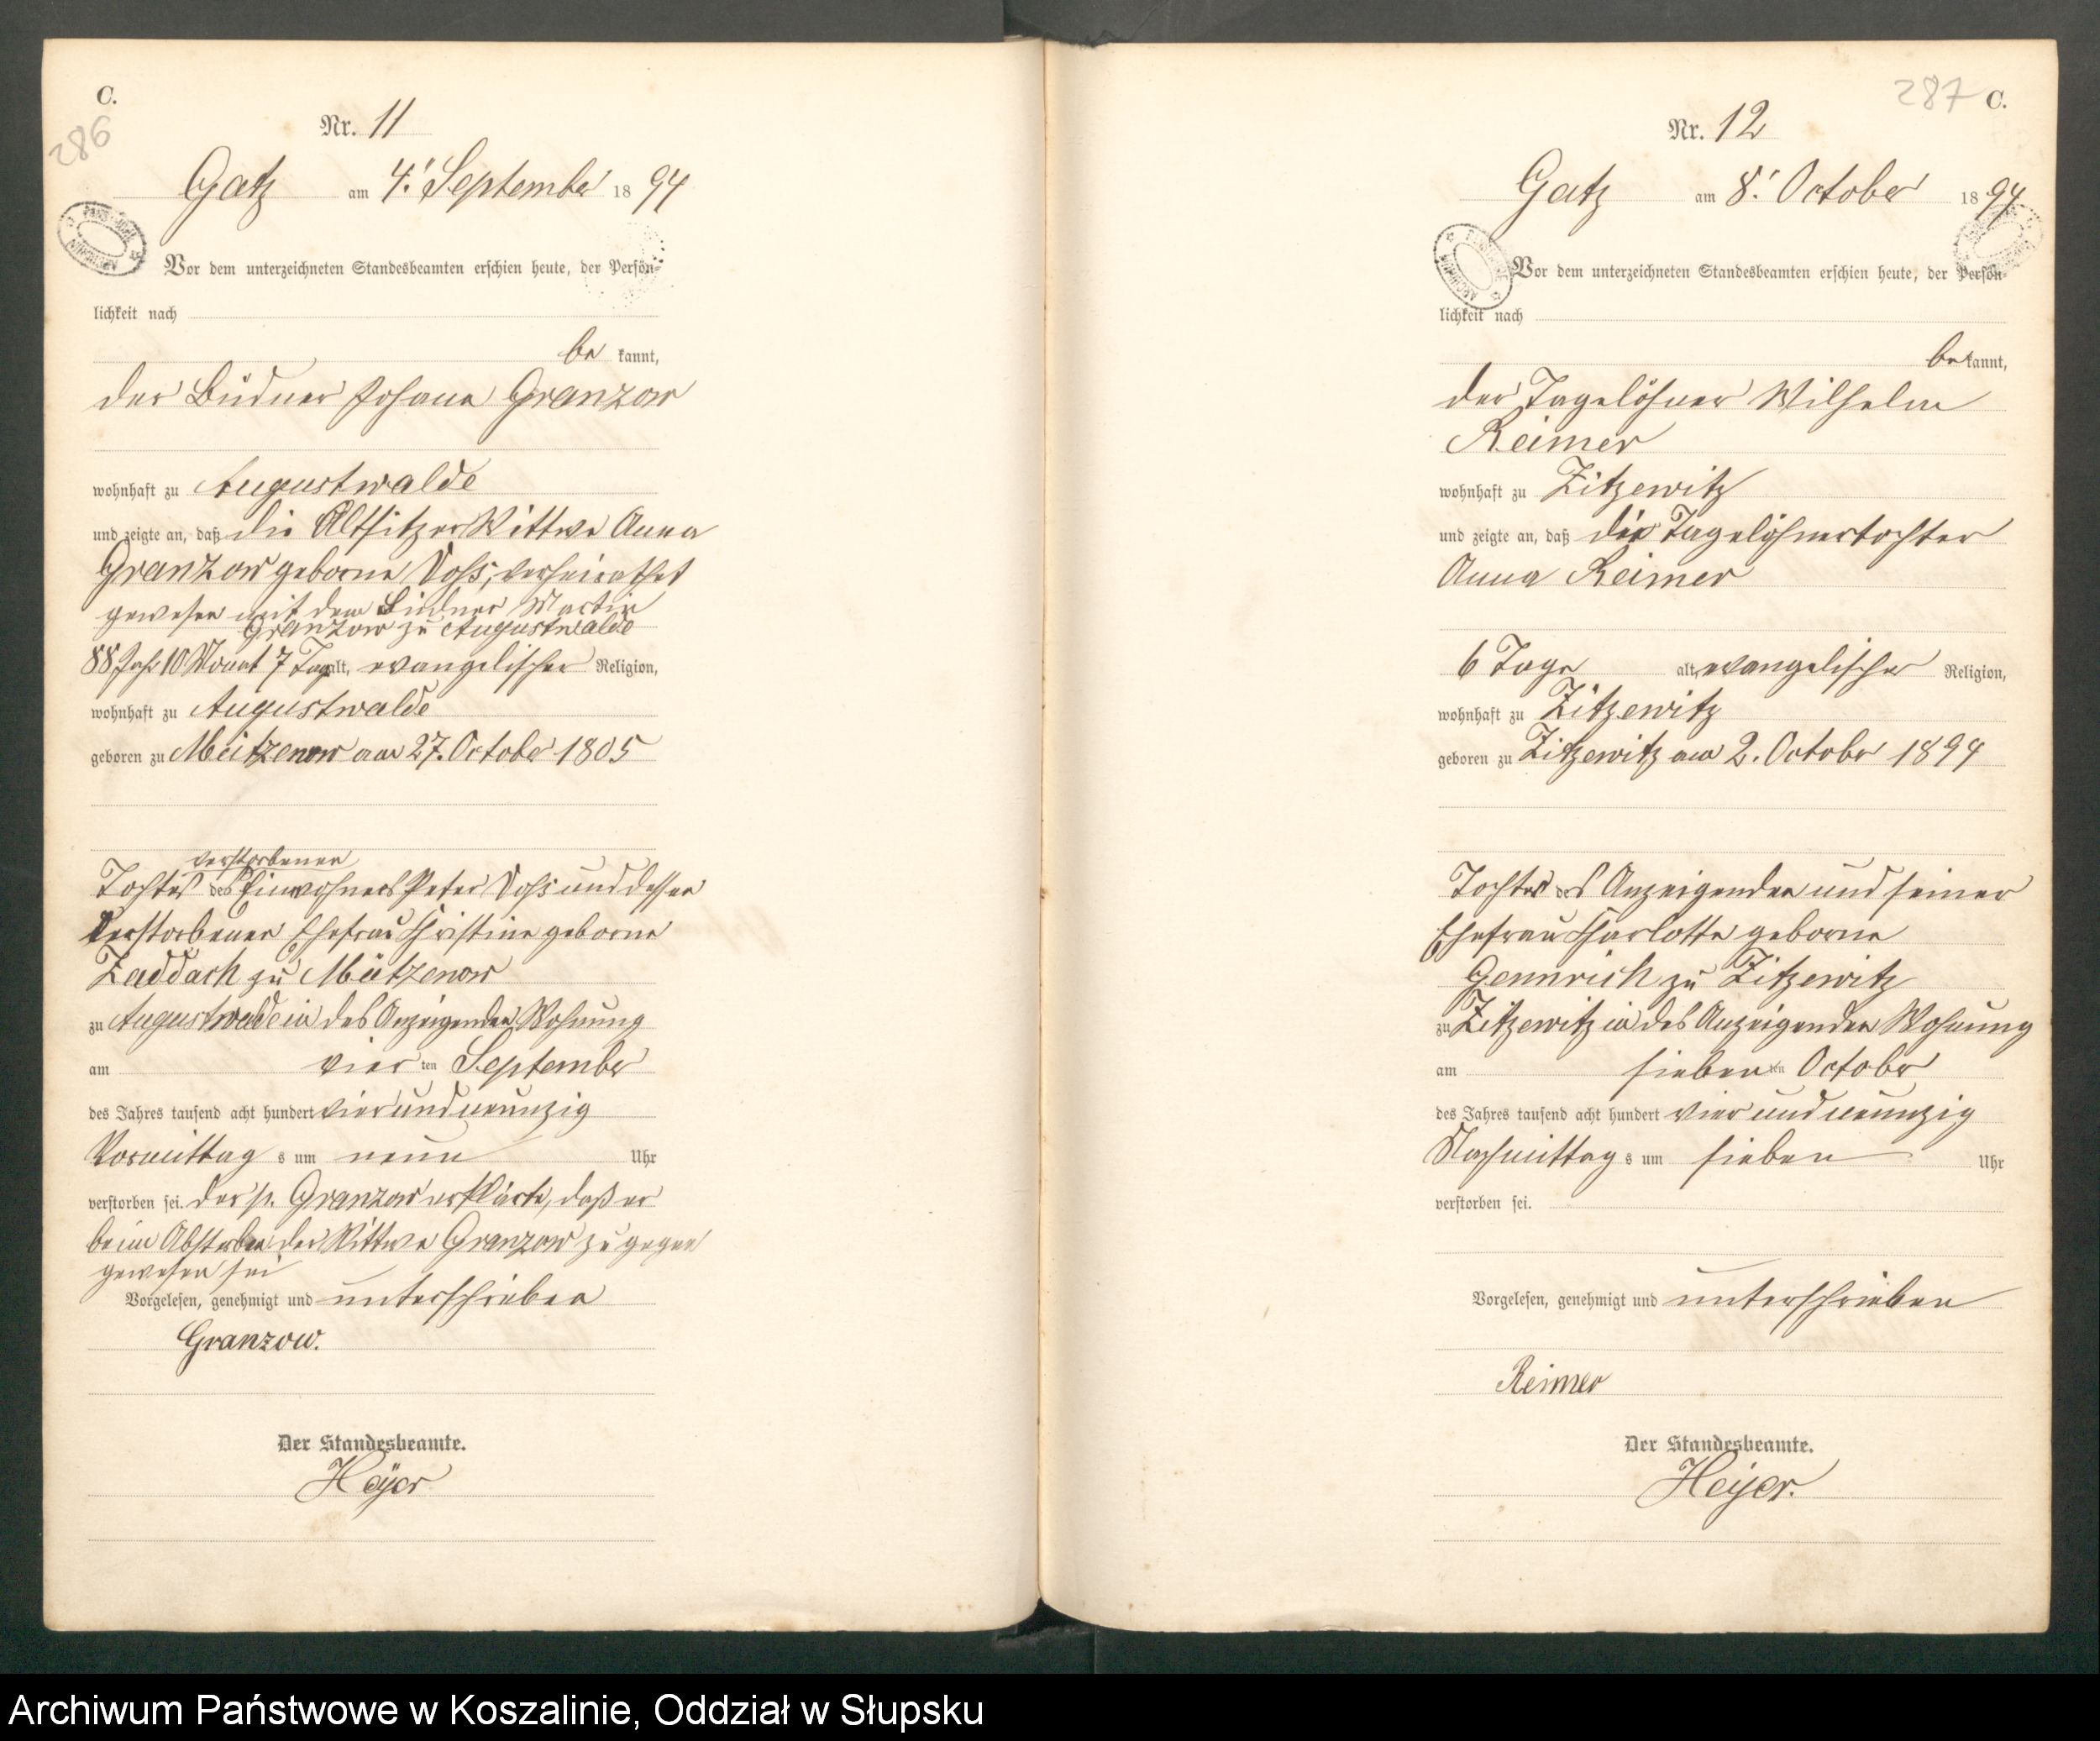 C.
286
Nr. 11
Gatz am 4. September 1894
Vor dem unterzeichneten Standesbeamten erschien heute, der Persön-
lichkeit nach
be kannt,
der Büdner Johann Granzow
wohnhaft zu Augustwalde
und zeigte an, daß die Altsitzer Wittwe Anna
Granzow geborne Voß, verheirathet
gewesen mit dem Büdner Martin
Granzow zu Augustwalde
88 Jahr 10 Monat 7 Tag alt, evangelischer Religion,
wohnhaft zu Augustwalde
geboren zu Mützenow am 27. October 1805
verstorbenen
Tochter des Einwohners Peter Voß und dessen
verstorbenen Ehefrau Christine geborne
Zaddach zu Mützenow
zu Augustwalde in des Anzeigenden Wohnung
am vier ten September
des Jahres tausend acht hundert vierundneunzig
Vormittag s um neun Uhr
verstorben sei. Der p. Granzow erklärte, daß er
beim Absterben der Wittwe Granzow zugegen
gewesen sei
Vorgelesen, genehmigt und unterschrieben
Granzow.
Der Standesbeamte.
Heyer
287 C.
Nr. 12
Gatz am 8. October 1894
Vor dem unterzeichneten Standesbeamten erschien heute, der Persön-
lichkeit nach
bekannt,
der Tagelöhner Wilhelm
Reimer
wohnhaft zu Zitzewitz
und zeigte an, daß die Tagelöhnertochter
Anna Reimer
6 Tage alt, evangelischer Religion,
wohnhaft zu Zitzewitz
geboren zu Zitzewitz am 2. October 1894
Tochter des Anzeigenden und seiner
Ehefrau Charlotte geborne
Gennrich zu Zitzewitz
zu Zitzewitz in des Anzeigenden Wohnung
am sieben ten October
des Jahres tausend acht hundert vier und neunzig
Nachmittag s um sieben Uhr
verstorben sei.
Vorgelesen, genehmigt und unterschrieben
Reimer
Der Standesbeamte.
Heyer.
Archiwum Państwowe w Koszalinie, Oddział w Słupsku